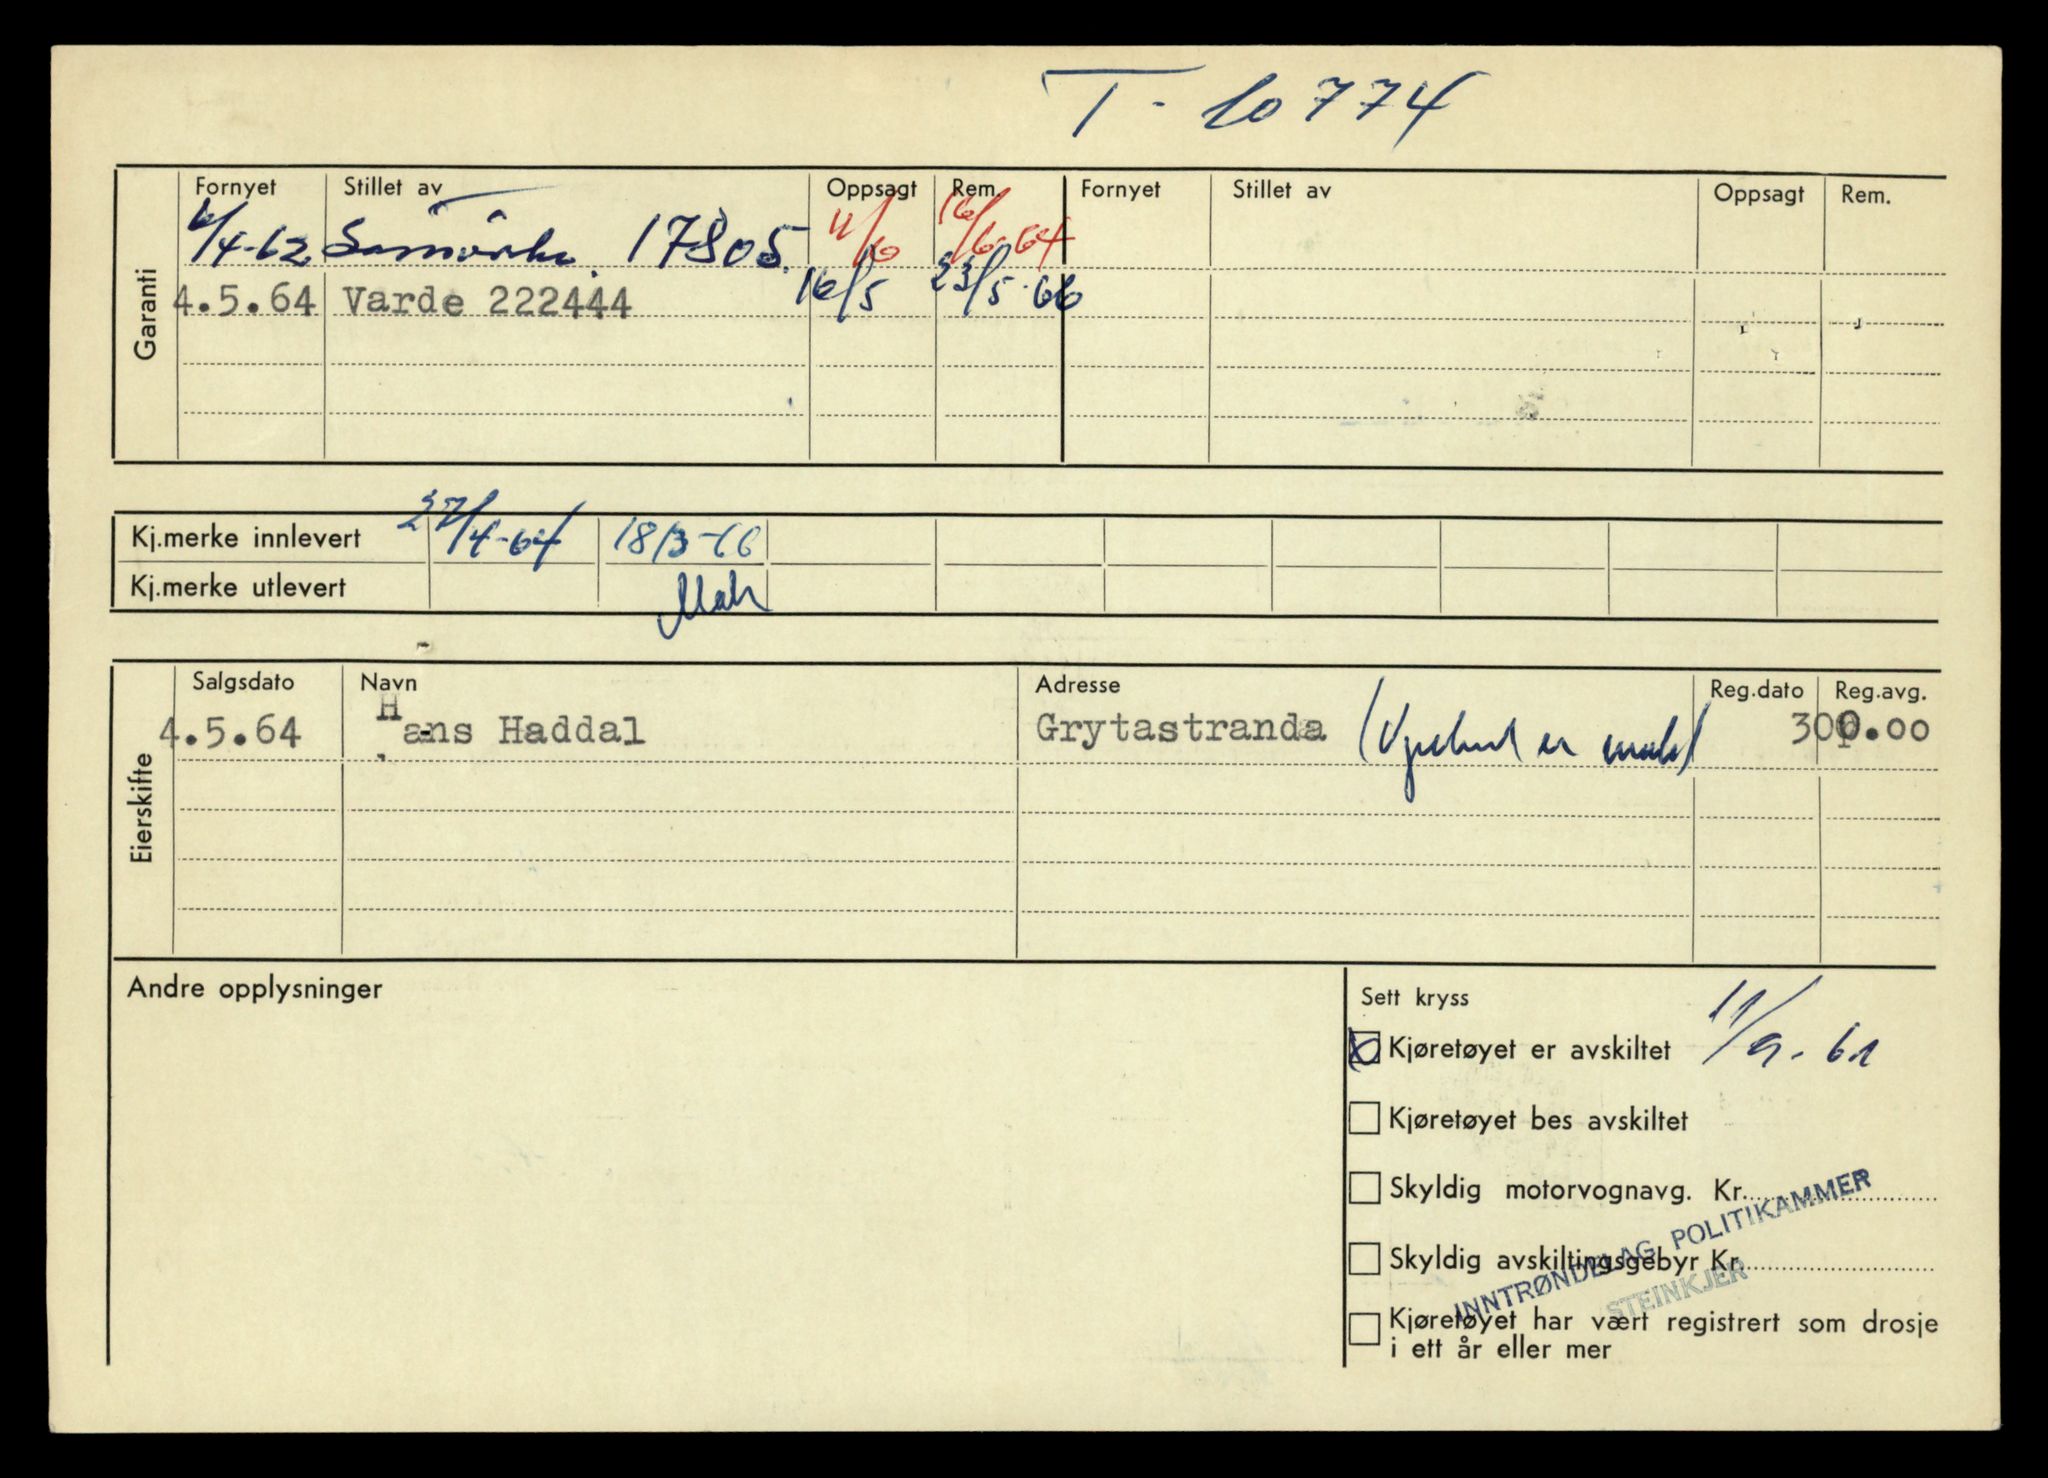 T - 10774
Garanti
Fornyet Stillet av Oppsagt Rem. Fornyet Stillet av Oppsagt Rem.
6/4-62 Samvirke. 17805. 11/6 16/6-64
4.5.64 Varde 222444 16/5 23/5-66
Kj.merke innlevert 27/4-64 18/3-66
Kj.merke utlevert Mak
Eierskifte
Salgsdato Navn Adresse Reg.dato Reg.avg.
4.5.64 Hans Haddal Grytastranda 300.00
Andre opplysninger
Sett kryss
Kjøretøyet er avskiltet 11/9-61
Kjøretøyet bes avskiltet
Skyldig motorvognavg. Kr.
Skyldig avskiltingsgebyr Kr.
INNTRØNDELAG POLITIKAMMER
STEINKJER
Kjøretøyet har vært registrert som drosje
i ett år eller mer